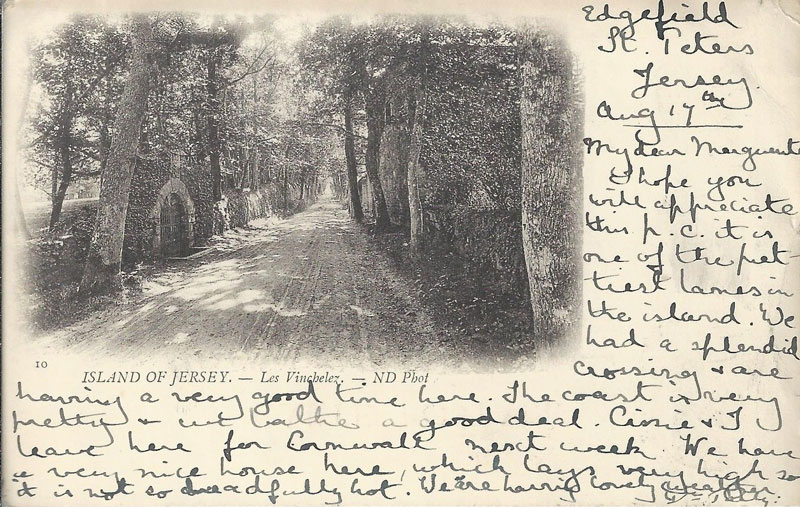 Edgefield
St. Peters
Jersey.
Aug 17th
My dear Marguerite
I hope you
will appreciate
this p.c. it is
one of the pret-
tiest lanes in
the island. We
had a splendid
crossing & are
10
ISLAND OF JERSEY. — Les Vinchelez. — ND Phot
having a very good time here. The coast is very
pretty & we bathe a good deal. Cissie & I
leave here for Cornwall next week. We have
a very nice house here, which lays very high so
it is not so dreadfully hot. We are having lovely weather